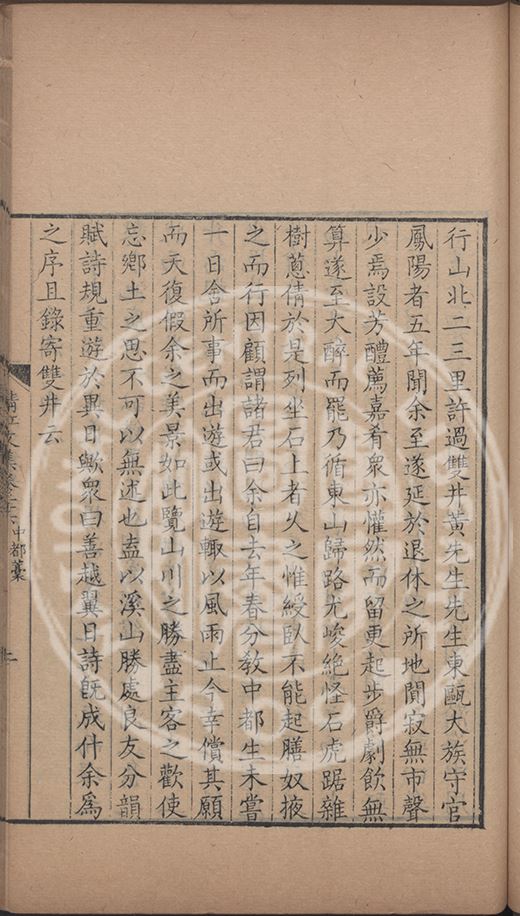 行山北二三里許過雙井黃先生先生東甌大族守官
鳳陽者五年聞余至遂延於退休之所地閴寂無市聲
少焉設芳醴薦嘉肴衆亦懽然而留更起步爵劇飲無
算遂至大醉而罷乃循東山歸路尤峻絶怪石虎踞雜
樹蔥倩於是列坐石上者久之惟綬臥不能起膳奴掖
之而行因顧謂諸君曰余自去年春分敎中都生未嘗
一日舍所事而出遊或出遊輙以風雨止今幸償其願
而天復假余之美景如此覽山川之勝盡主客之歡使
忘鄉土之思不可以無述也盍以溪山勝處良友分韻
賦詩規重遊於異日歟衆曰善越翼日詩旣成什余爲
之序且錄寄雙井云
清江文集卷二十六 中都藁